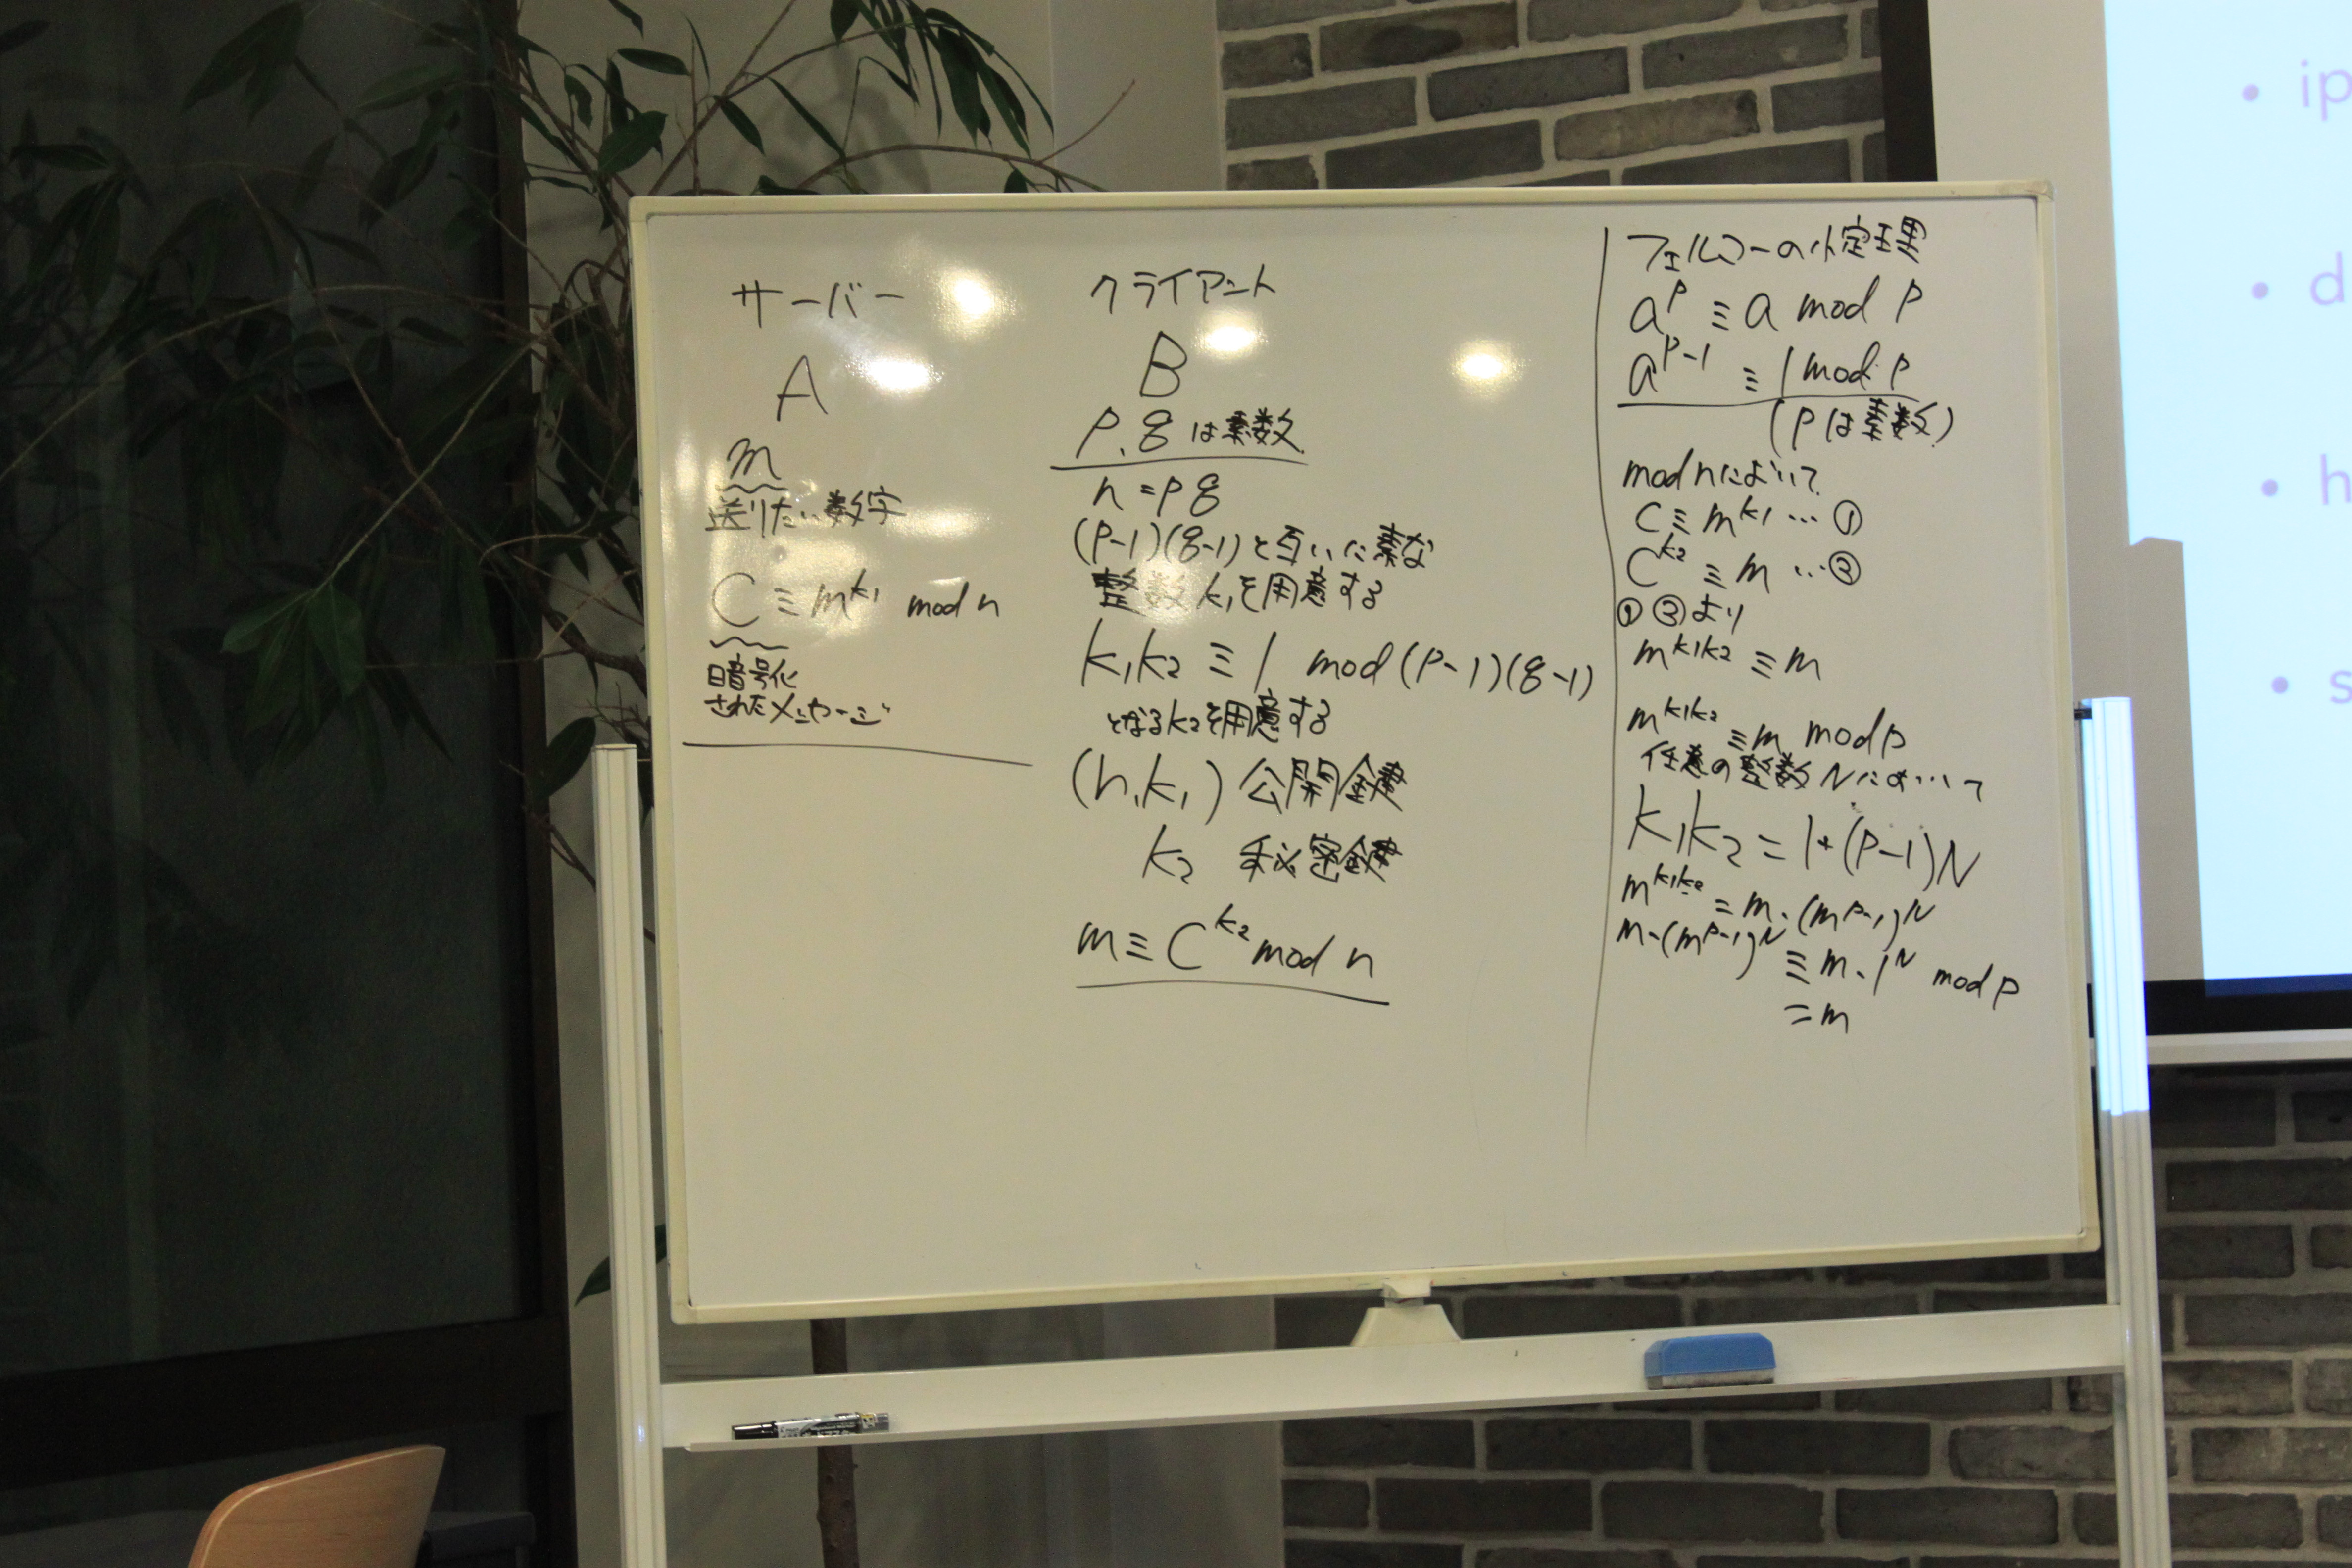 サーバー
A
m
送りたい数字
C ≡ m^k₁ mod n
暗号化
されたメッセージ
クライアント
B
P, q は素数
n = pq
(P-1)(q-1)と互いに素な
整数 k₁を用意する
k₁k₂ ≡ 1 mod (P-1)(q-1)
となるk₂を用意する
(n, k₁) 公開鍵
k₂ 秘密鍵
m ≡ C^k₂ mod n
フェルマーの小定理
a^p ≡ a mod P
a^(p-1) ≡ 1 mod P
(Pは素数)
mod nにおいて
C ≡ m^k1 … ①
C^k2 ≡ m …②
① ②より
m^k1k2 ≡ m
m^k1k2 ≡ m mod p
任意の整数Nにおいて
k₁k₂ = 1+(P-1)N
m^k1k2 = m・(m^p-1)^N
m・(m^p-1)^N ≡ m・1^N mod p
= m
• ip
• d
• h
• s